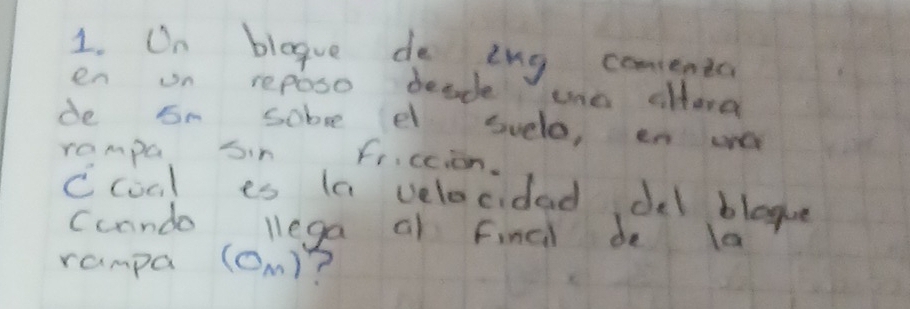 1. Un bloque de 2kg comienza
en un reposo desde una altura
de 5m sobre el suelo, en una
rampa sin fricción.
¿cual es la velocidad del bloque
cuando llega al final de la
rampa (0m)?